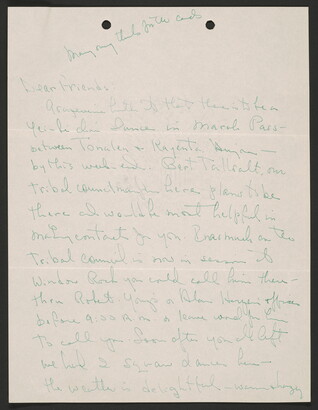 Many many thanks for the cards
Dear Friends:
that there is to be a
Ye-bi-chi dance in Marsh Pass -
between Tonalea & Kayenta
by this week-end. Bert Tallsalt, our
tribal councilman here plans to be
there and would be most helpful in
making contacts for you. Inasmuch as the
Tribal Council is now in session at
Window Rock you could call him there -
thru Robert Young's or offices
before 9:30 A.M. or leave word for him
to call you. Soon after you left
we had 2 squaw dances here -
the weather is delightful -